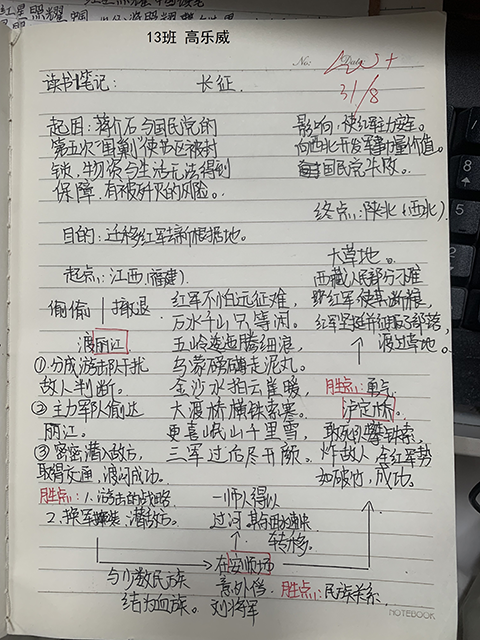 红星照耀中国
13班 高乐威
No:
Date:
31/8
读书笔记：
长征.
起因：蒋介石与国民党的
第五次"围剿"使苏区被封
锁，物资与生活无法得到
保障，有被歼灭的风险。
影响，使红军主力安全。
向西北开发革命力量价值。
国民党失败。
终点：陕北（西北）
目的：迁移红军，革新根据地。
起点：江西（福建）
大草地。
西藏人民部分刁难
红军不怕远征难，
万水千山只等闲。
五岭逶迤腾细浪，
乌蒙磅礴走泥丸。
金沙水拍云崖暖，
大渡桥横铁索寒。
更喜岷山千里雪，
三军过后尽开颜。
偷偷
撤退
渡丽江
①分成游击队干扰
敌人判断。
②主力军队偷达
丽江。
③密潜入敌方，
取得交通，渡河成功。
胜点：1.游击的战略
2.换军装潜敌方。
渡过草地。
胜点：勇气
泸定桥。
敢死队攀铁索，
炸敌人，红军势
如破竹，成功。
一师人得以
过河，
转移。
在安顺场
意外借
刘将军
与少数民族
结为血族。
胜点：民族关系.
NOTEBOOK